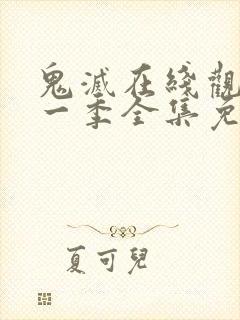 鬼滅在綫觀
一季全集免
夏可兒